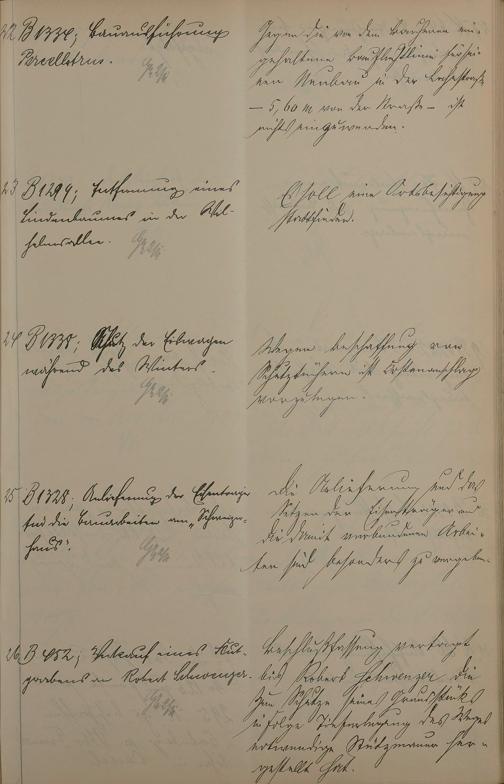 22 B 1334; Bauausführung
Gegen die von dem Bauherrn ein-
gehaltene Baufluchtlinie für sei-
nen Neubau in der
– 5,60 m von der Straße – ist
nichts einzuwenden.
23 B 1299; Entfernung eines
Lindenbaumes in der Wil-
helmsallee.
Es soll eine Ortsbesichtigung
stattfinden.
24 B 1338; Schutz der Eilwagen
während des Winters.
Wegen Beschaffung von
Schutztüchern ist Kostenanschlag
vorzulegen.
25 B 1328; Anlieferung der Eisenträger
und die Bauarbeiten am „
haus".
Die Anlieferung und das
Setzen der Eisenträger und
die damit verbundenen Arbei-
ten sind besonders zu vergeben.
26 B 452; Verkauf eines
grabens an Robert Schwenzer.
Beschlußfassung vertagt
bis Robert Schwenzer die
zum Schutze seines Grundstücks
infolge Tieferlegung des Weges
notwendige Stützmauer her-
gestellt hat.